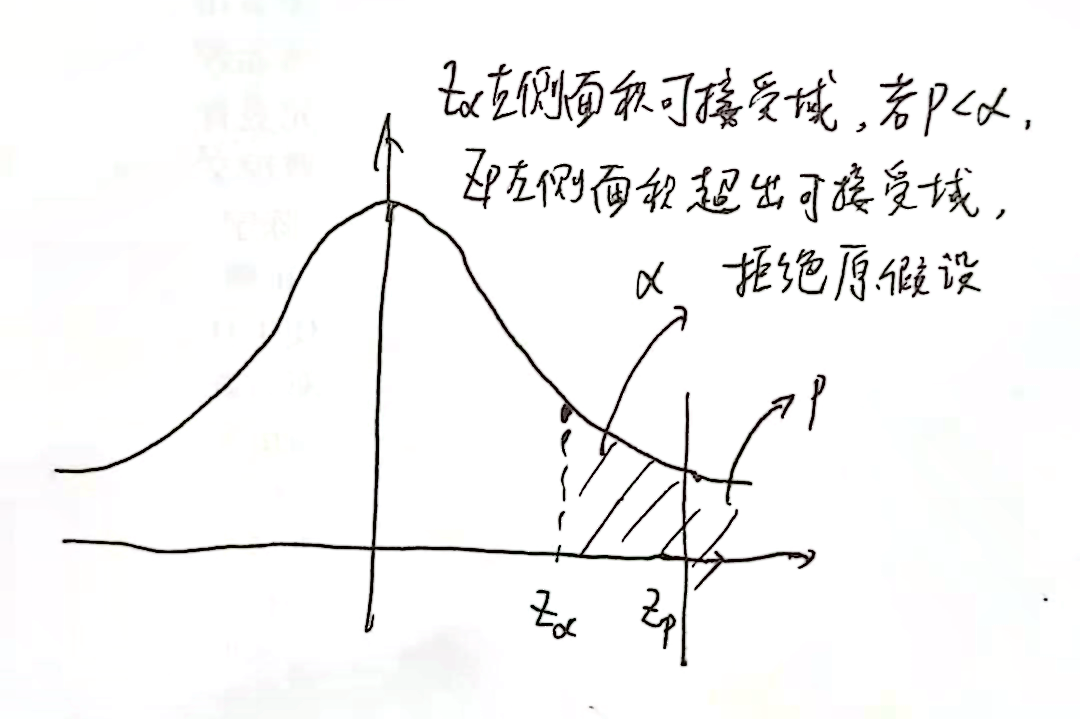 Zα左侧面积可接受域,若P<α,
Zp左侧面积超出可接受域,
α 拒绝原假设
P
Zα Zp